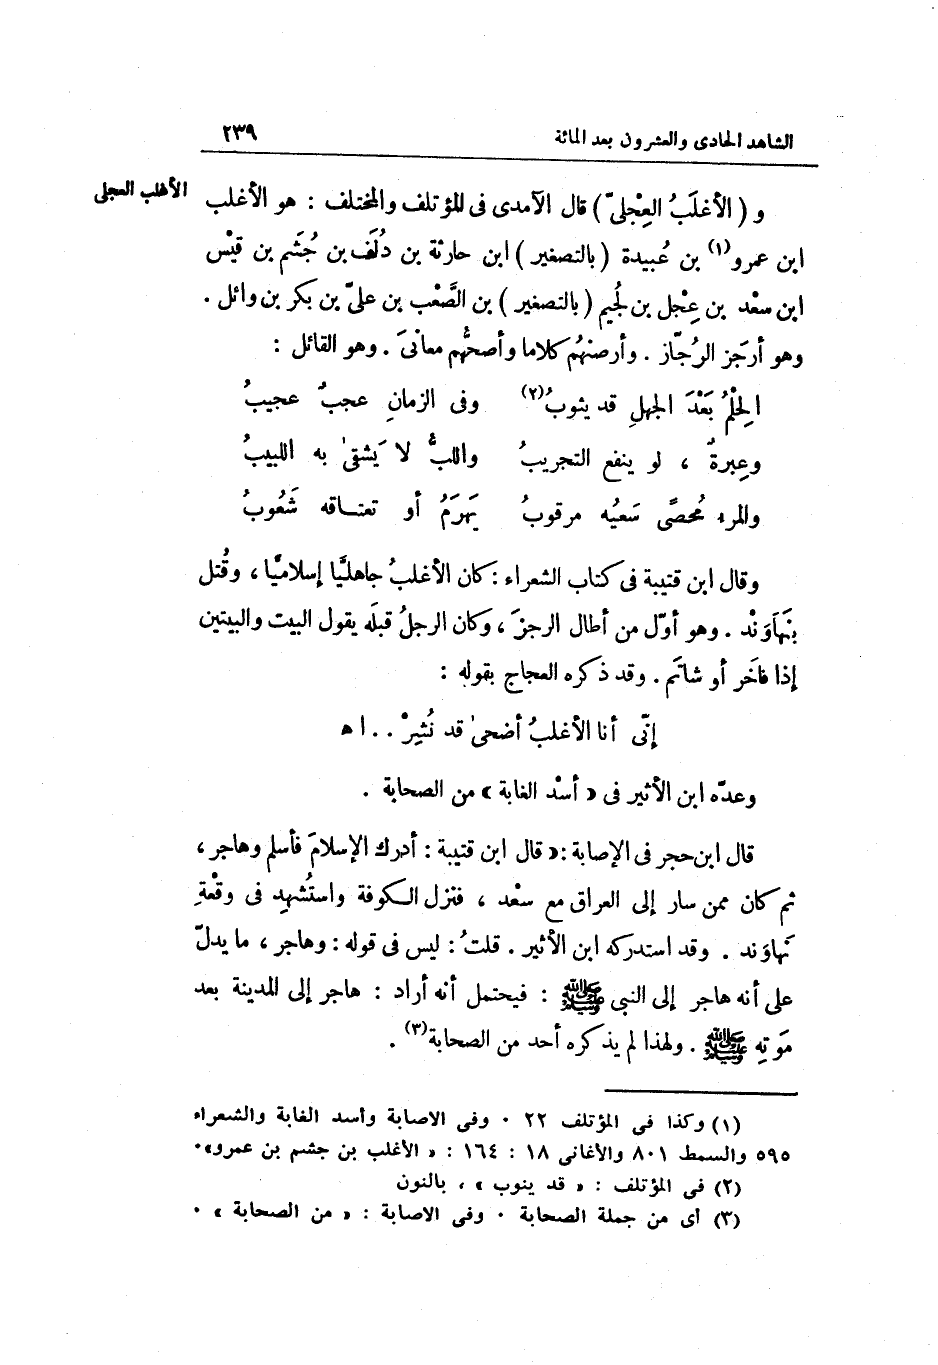 الشاهد الحادى والعشرون بعد المائة ٢٣٩
و ( الأغلَبُ العِجْلىّ ) قال الآمدى فى المؤتلف والمختلف : هو الأغلب
الأغلب العجلى
ابن عمرو(١) بن عُبيدة ( بالتصغير ) ابن حارثة بن دُلَف بن جُشَم بن قيْس
ابن سعْد بن عِجْل بن لُجيم ( بالتصغير ) بن الصَّعْب بن علىّ بن بكر بن وائل .
وهو أرجَز الرجّاز . وأرصنهُم كلاما وأصحُّهم معانىَ . وهو القائل :
الحِلْمُ بَعْدَ الجهلِ قد يثوبُ(٢) وفى الزمانِ عجبٌ عجيبُ
وعِبرةٌ ، لو ينفع التجريبُ واللبُّ لا يَشقىٰ به اللبيبُ
والمرء مُحصًى سَعيُه مرقوبُ يَهرَمُ أو تعتاقه شَعُوبُ
وقال ابن قتيبة فى كتاب الشعراء : كان الأغلبُ جاهليًّا إسلاميًّا ، وقُتل
بنَهَاوَنْد . وهو أوّل من أطال الرجزَ ، وكان الرجلُ قبلَه يقول البيت والبيتين
إذا فاخَر أو شاتَم . وقد ذكره العجاج بقوله :
إنّى أنا الأغلبُ أضحىٰ قد نُثِيرْ . . ا ه
وعدّه ابن الأثير فى « أسْد الغابة » من الصحابة .
قال ابن حجر فى الإصابة : « قال ابن قتيبة : أدرك الإسلامَ فأسلم وهاجر ،
ثم كان ممن سار إلى العراق مع سعْد ، فنزل الكوفة واستُشهِد فى وقْعةِ
نَهاوَند . وقد استدركه ابن الأثير . قلتُ : ليس فى قوله : وهاجر ، ما يدلّ
على أنه هاجر إلى النبى ﷺ : فيحتمل أنه أراد : هاجر إلى المدينة بعد
مَوتِه ﷺ . ولهذا لم يذكره أحد من الصحابة(٣) .
(١) وكذا فى المؤتلف ٢٢ . وفى الاصابة وأسد الغابة والشعراء
٥٩٥ والسمط ٨٠١ والأغانى ١٨ : ١٦٤ : « الأغلب بن جشم بن عمرو » .
(٢) فى المؤتلف : « قد ينوب » ، بالنون
(٣) أى من جملة الصحابة . وفى الاصابة : « من الصحابة » .